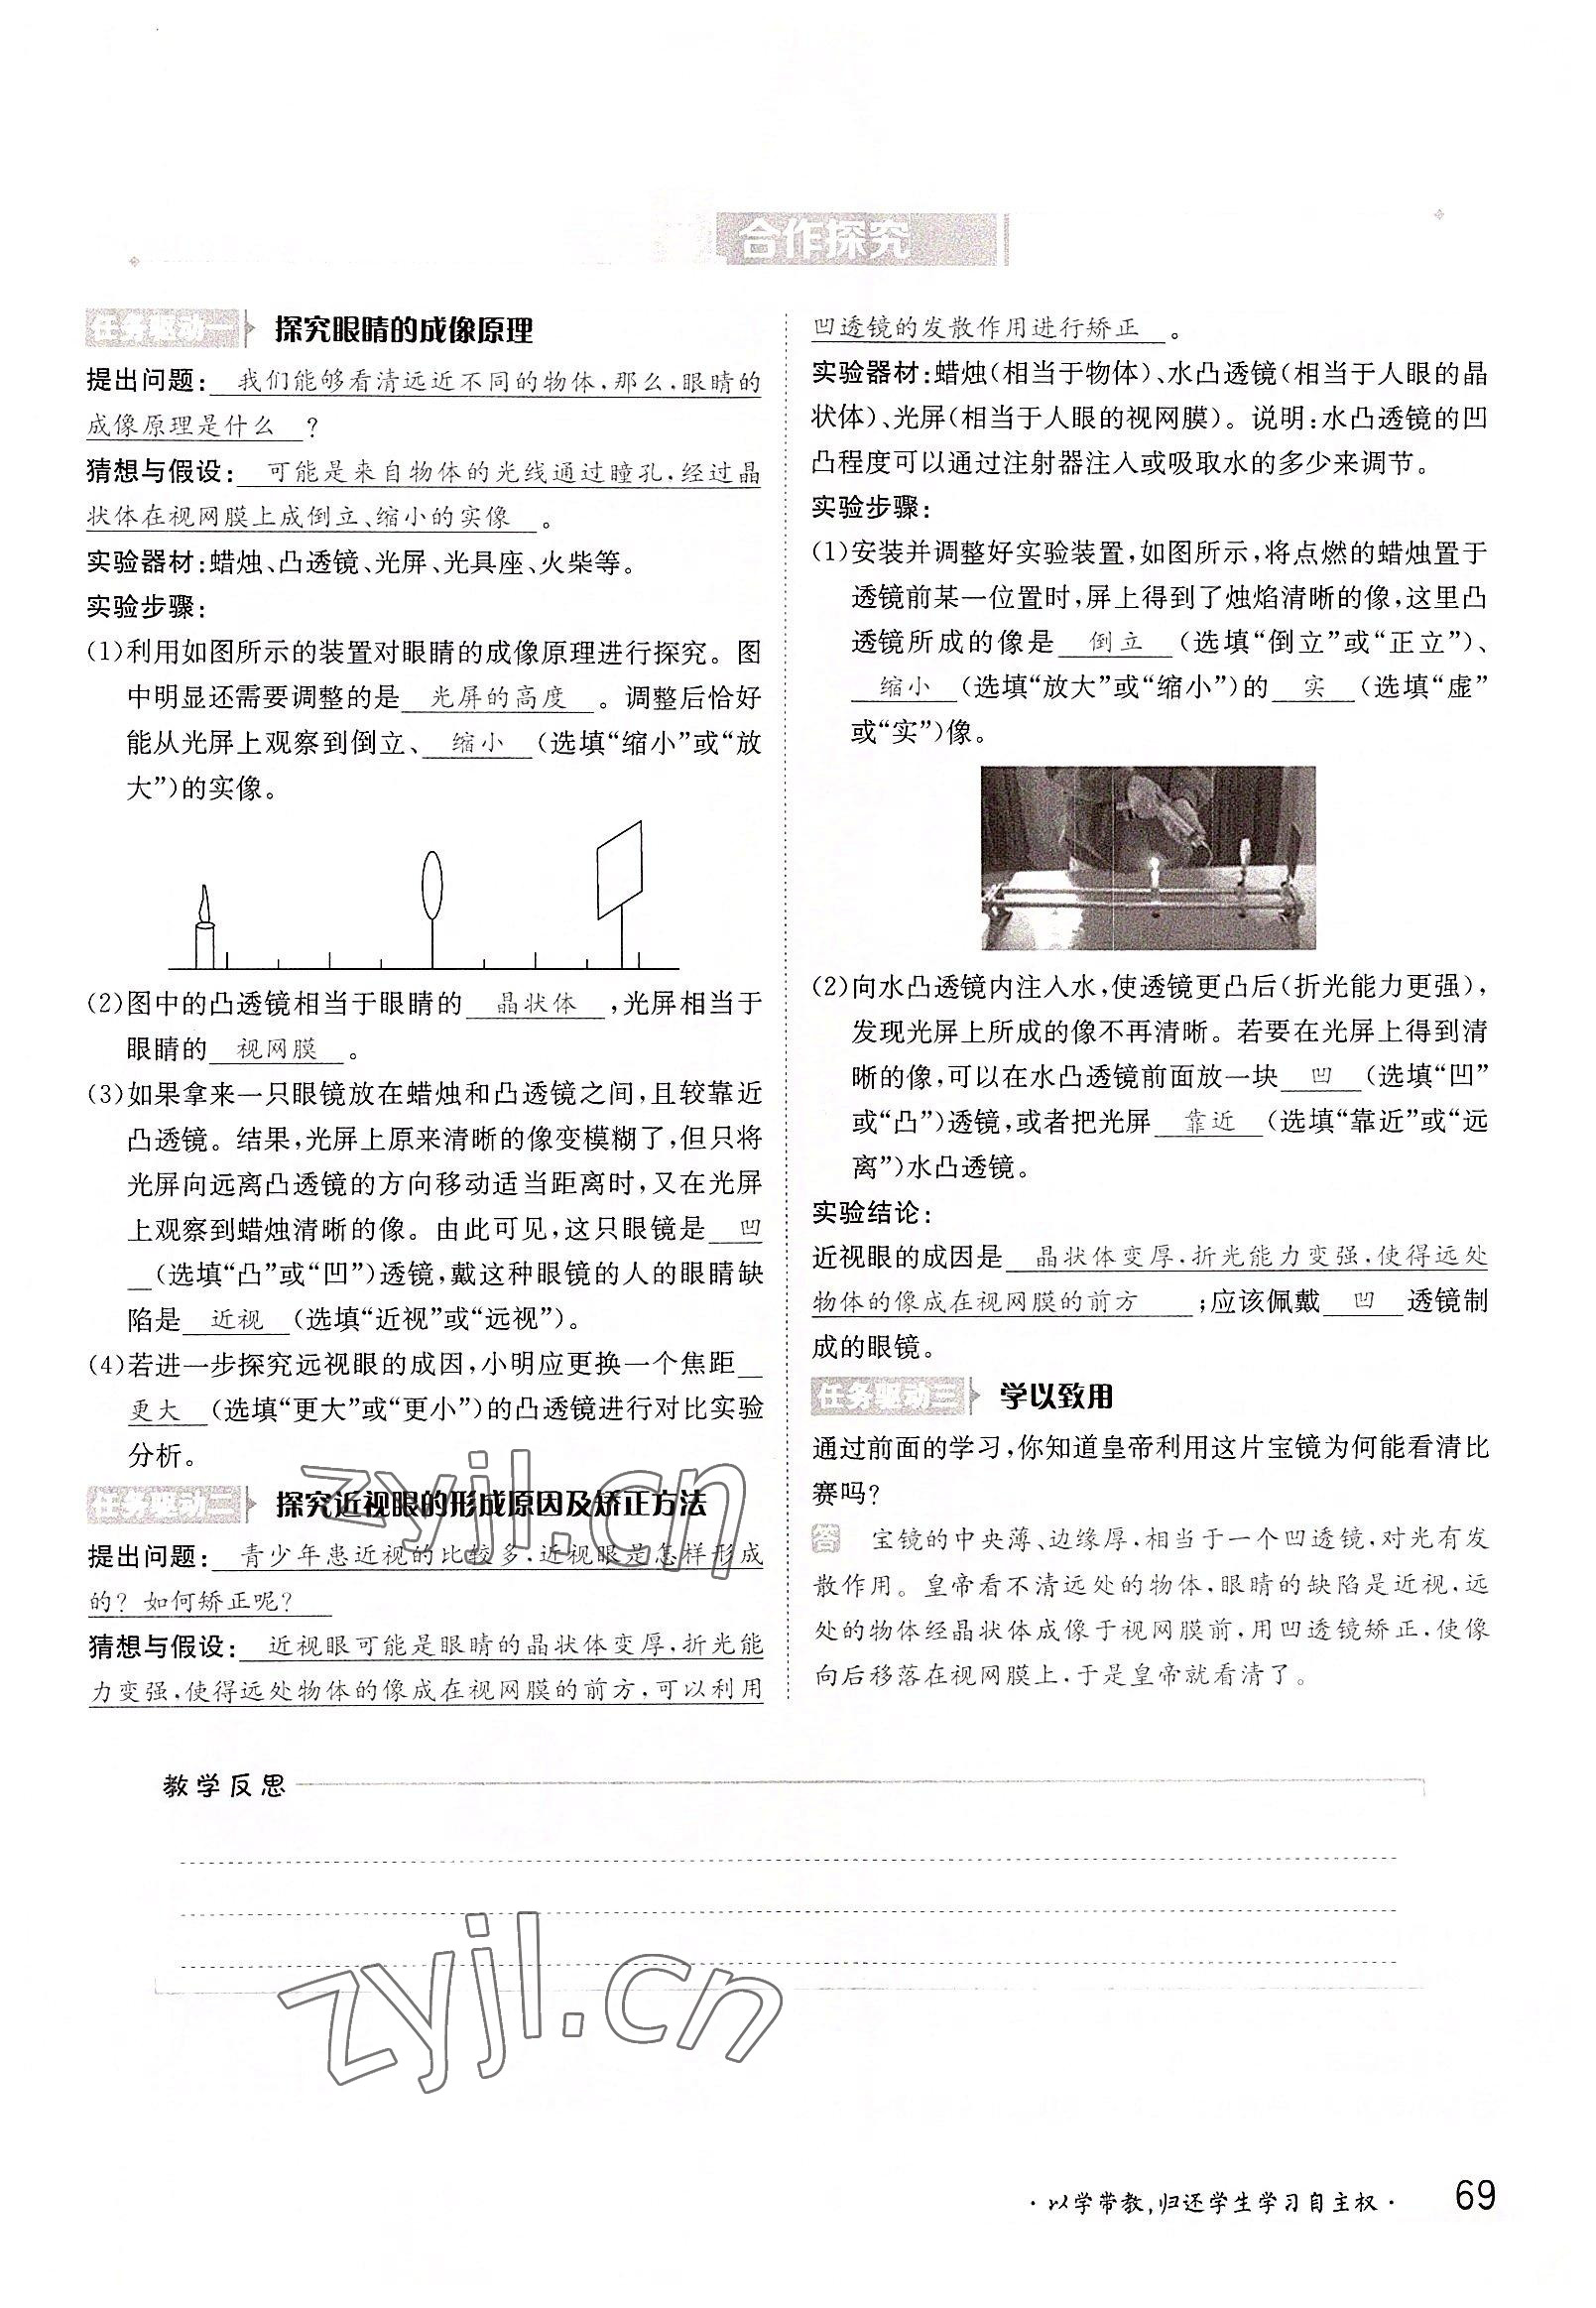 合作探究
任务驱动一 探究眼睛的成像原理
提出问题: 我们能够看清远近不同的物体,那么,眼睛的
成像原理是什么 ?
猜想与假设: 可能是来自物体的光线通过瞳孔,经过晶
状体在视网膜上成倒立、缩小的实像 。
实验器材:蜡烛、凸透镜、光屏、光具座、火柴等。
实验步骤:
(1)利用如图所示的装置对眼睛的成像原理进行探究。图
中明显还需要调整的是 光屏的高度 。调整后恰好
能从光屏上观察到倒立、 缩小 (选填“缩小”或“放
大”)的实像。
(2)图中的凸透镜相当于眼睛的 晶状体 ,光屏相当于
眼睛的 视网膜 。
(3)如果拿来一只眼镜放在蜡烛和凸透镜之间,且较靠近
凸透镜。结果,光屏上原来清晰的像变模糊了,但只将
光屏向远离凸透镜的方向移动适当距离时,又在光屏
上观察到蜡烛清晰的像。由此可见,这只眼镜是 凹
(选填“凸”或“凹”)透镜,戴这种眼镜的人的眼睛缺
陷是 近视 (选填“近视”或“远视”)。
(4)若进一步探究远视眼的成因,小明应更换一个焦距
更大 (选填“更大”或“更小”)的凸透镜进行对比实验
分析。
任务驱动二 探究近视眼的形成原因及矫正方法
提出问题: 青少年患近视的比较多,近视眼是怎样形成
的?如何矫正呢?
猜想与假设: 近视眼可能是眼睛的晶状体变厚,折光能
力变强,使得远处物体的像成在视网膜的前方,可以利用
凹透镜的发散作用进行矫正 。
实验器材:蜡烛(相当于物体)、水凸透镜(相当于人眼的晶
状体)、光屏(相当于人眼的视网膜)。说明:水凸透镜的凹
凸程度可以通过注射器注入或吸取水的多少来调节。
实验步骤:
(1)安装并调整好实验装置,如图所示,将点燃的蜡烛置于
透镜前某一位置时,屏上得到了烛焰清晰的像,这里凸
透镜所成的像是 倒立 (选填“倒立”或“正立”)、
缩小 (选填“放大”或“缩小”)的 实 (选填“虚”
或“实”)像。
(2)向水凸透镜内注入水,使透镜更凸后(折光能力更强),
发现光屏上所成的像不再清晰。若要在光屏上得到清
晰的像,可以在水凸透镜前面放一块 凹 (选填“凹”
或“凸”)透镜,或者把光屏 靠近 (选填“靠近”或“远
离”)水凸透镜。
实验结论:
近视眼的成因是 晶状体变厚,折光能力变强,使得远处
物体的像成在视网膜的前方 ;应该佩戴 凹 透镜制
成的眼镜。
任务驱动三 学以致用
通过前面的学习,你知道皇帝利用这片宝镜为何能看清比
赛吗?
答 宝镜的中央薄、边缘厚,相当于一个凹透镜,对光有发
散作用。皇帝看不清远处的物体,眼睛的缺陷是近视,远
处的物体经晶状体成像于视网膜前,用凹透镜矫正,使像
向后移落在视网膜上,于是皇帝就看清了。
zyjl.cn
教学反思
zyjl.cn
·以学带教,归还学生学习自主权· 69